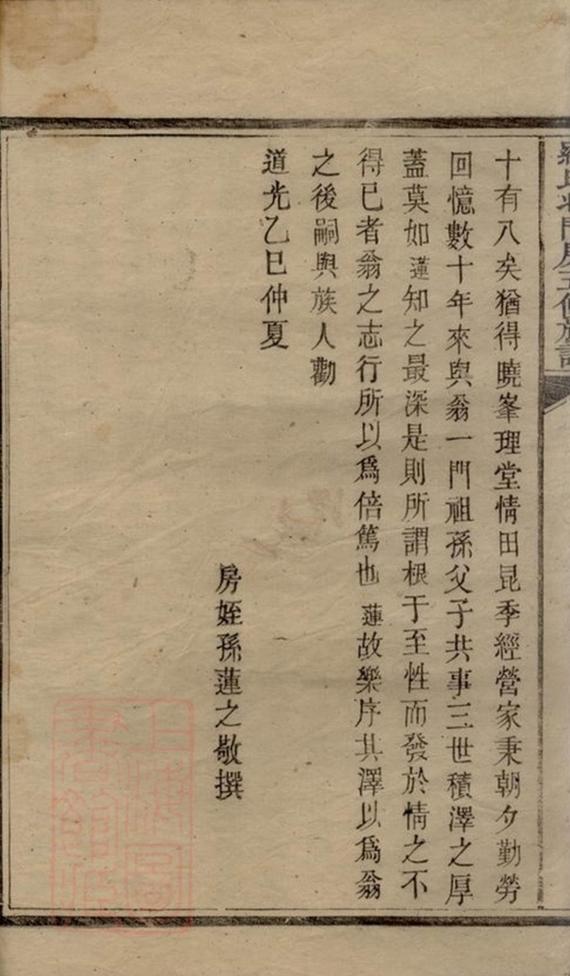 十有八矣猶得曉峯理堂情田昆季經營家秉朝夕勤勞
回憶數十年來與翁一門祖孫父子共事三世積澤之厚
蓋莫如蓮知之最深是則所謂根于至性而發於情之不
得已者翁之志行所以爲倍篤也蓮故樂序其澤以爲翁
之後嗣與族人勸
道光乙巳仲夏
房姪孫蓮之敬撰